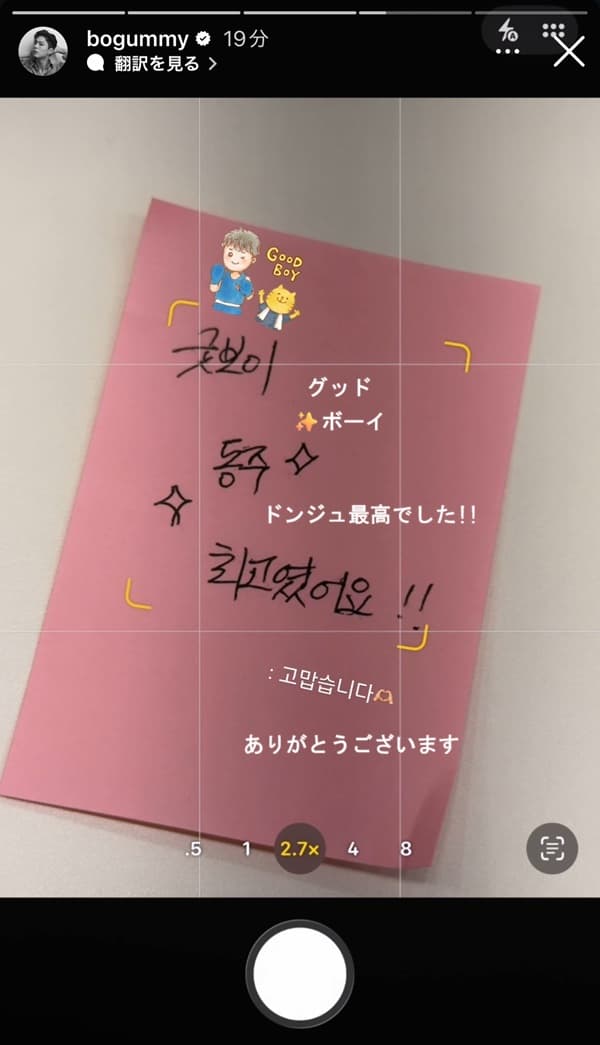 bogummy 19分
翻訳を見る
GOOD
BOY
굿보이
グッド
✨ボーイ
동주✧
✧
ドンジュ最高でした!!
최고였어요 !!
: 고맙습니다🫶🏻
ありがとうございます
.5 1 2.7× 4 8